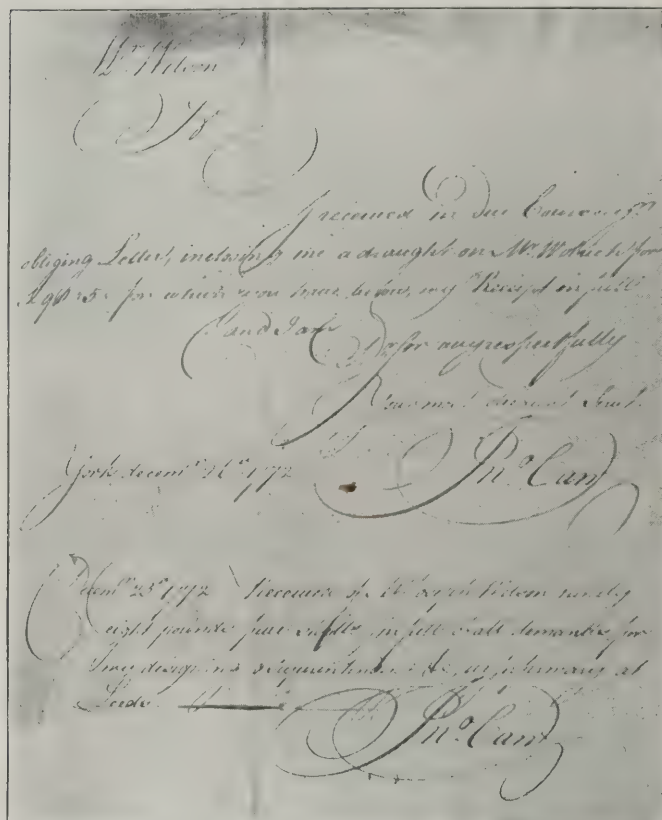 Mr. Wilson
Sr
I received in due Course yr.
obliging Letter, inclosing me a draught on Mr. for
£ 98 " 5 " for which you have below, my Receipt in full
and I am Sr. for any respectfully
Your most obedient Servt.
York decemr. 1772 Jno. Carr
Decemr. 25 1772 Received of Mr. Wilson ninety
eight pounds five shills. in full of all demands for
my designs &c. at
Leeds Jno. Carr